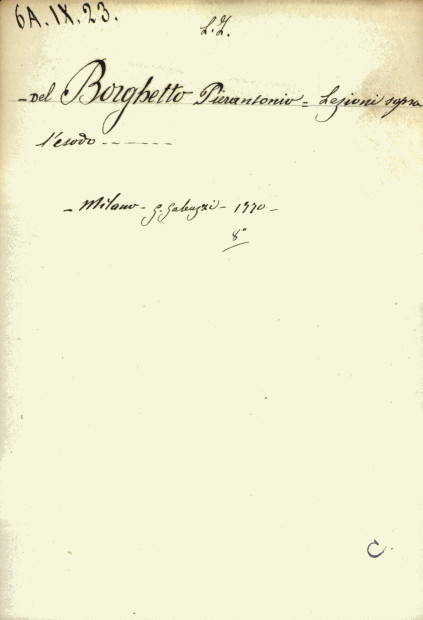 6A.IX.23.
L.Z.
- Del Borghetto Pierantonio = Lezioni sopra
l'esodo - - - - -
- Milano - G. Galeazzi - 1770 -
8°
C.